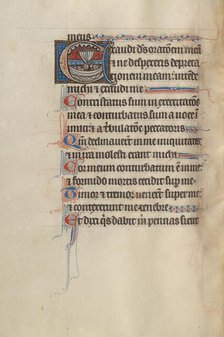 meus
Exaudi ds orationem mea
& ne despexeris depreca
tionem meam: intende
michi & exaudi me
Contristatus sum in exercitatione
mea & conturbatus sum a voce
inimici & a tribulatione peccatoris
Qm declinaverunt in me iniquitates
& in ira molesti erant michi
Cor meum conturbatum est in me
& formido mortis cecidit sup me
Timor & tremor venerunt super me
& contexerunt me tenebre
Et dixi quis dabit m pennas sicut